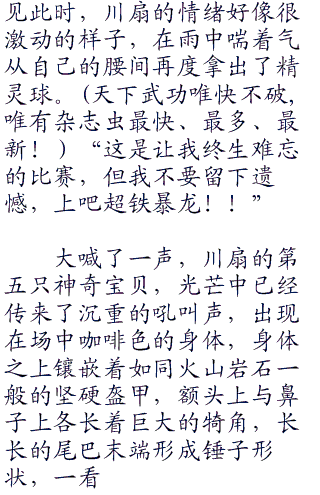 见此时，川扇的情绪好像很
激动的样子，在雨中喘着气
从自己的腰间再度拿出了精
灵球。(天下武功唯快不破,
唯有杂志虫最快、最多、最
新！)“这是让我终生难忘
的比赛，但我不要留下遗
憾，上吧超铁暴龙！！”
大喊了一声，川扇的第
五只神奇宝贝，光芒中已经
传来了沉重的吼叫声，出现
在场中咖啡色的身体，身体
之上镶嵌着如同火山岩石一
般的坚硬盔甲，额头上与鼻
子上各长着巨大的犄角，长
长的尾巴末端形成锤子形
状，一看